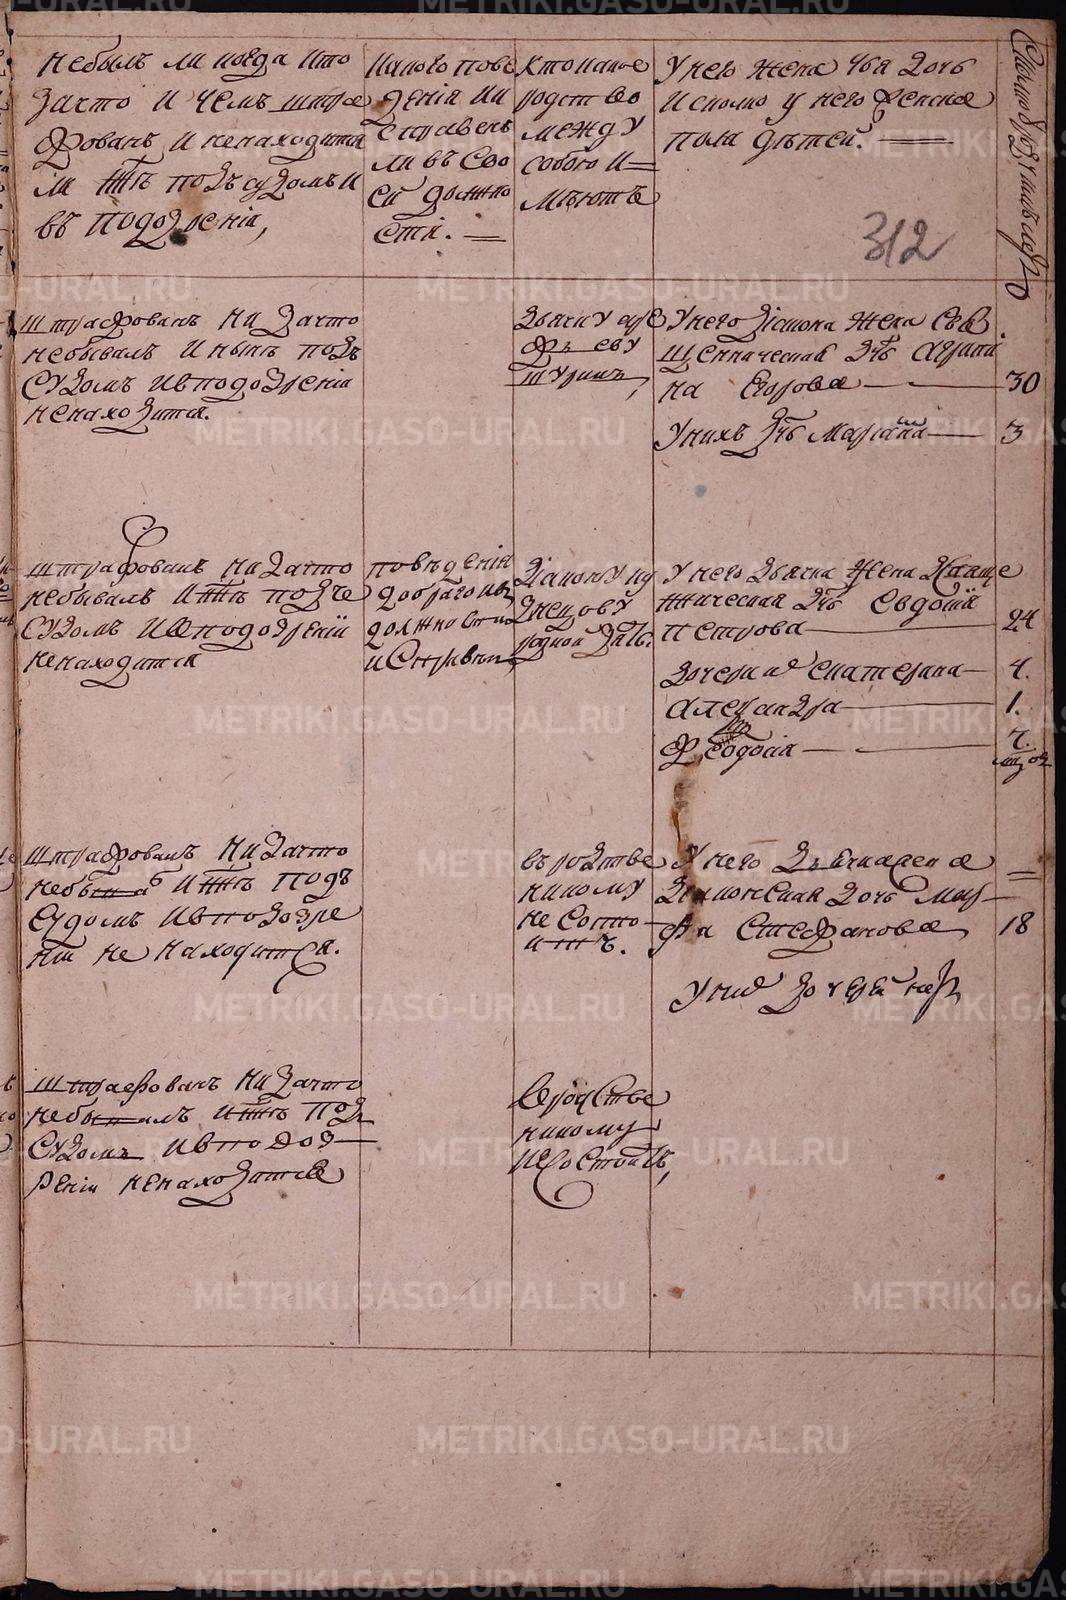 небылъ ли когда кто
зачто и чемъ штра
фованъ и ненаходитца
ли нтъ подъ судомъ и
въ подозрении,
какого пове
денія и и
справенъ
ли въ сво
ей должно
сти.
кто какое
родство
между
собою и
мѣютъ
У него жена чья дочь
и сколко у него женска
пола дѣтей.
312
штрафованъ низачто
небывалъ и нынѣ подъ
судомъ ивподозрении
ненаходитца.
дьячку
шуринъ,
Унего діакона жена свя
щенническая дчь Агрипи
на Егорова 30
Унихъ дчь Маріанна 3
штрафованъ низачто
небывалъ и нтъ подъ
судомъ ивподозрении
ненаходитца
поведения
доброго ивъ
должности
исправенъ
діакону ку
знецову
родной зять.
унего дьячка жена
дчь Евдокія
Петрова 24
дочери ихъ Екатерина 4.
Александра 1.
Феодосія
штрафованъ низачто
небывалъ и нтъ подъ
судомъ ивподозре
нии не находитца.
въ родстве
никому
не состо
итъ.
У него
діаконская дочь Мар
фа Стефанова 18
Унихъ дочерей нетъ
штрафованъ низачто
небывалъ и нтъ под
судомъ ивподоз
рении ненаходитца
вродстве
никому
несостоитъ,
METRIKI.GASO-URAL.RU